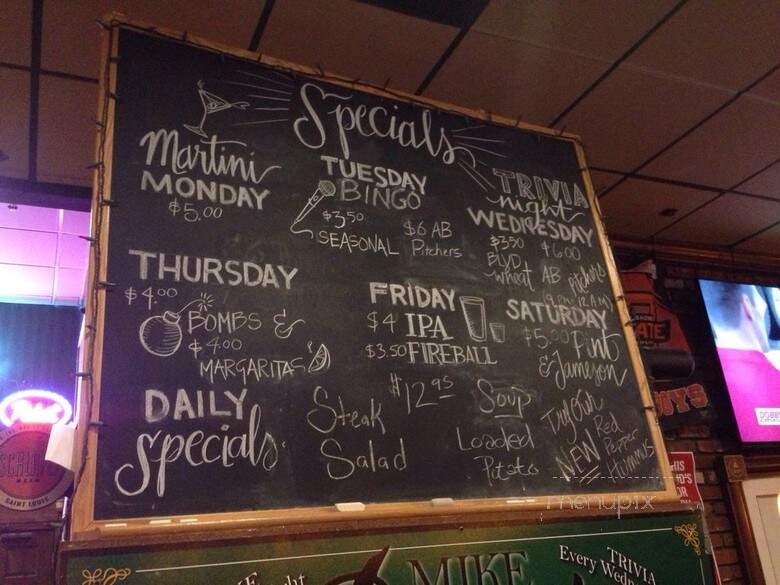 Specials
Martini
MONDAY
$5.00
TUESDAY
BINGO
$3.50
SEASONAL
$6 AB
Pitchers
TRIVIA
night
WEDNESDAY
$3.50
BLVD
wheat
$6.00
AB Pitchers
(9PM-12AM)
THURSDAY
$4.00
BOMBS &
$4.00
MARGARITAS
FRIDAY
$4 IPA
$3.50 FIREBALL
SATURDAY
$5.00 Pint
& Jameson
DAILY
Specials
Steak
Salad
$12.95
Soup
Loaded
Potato
Try Our
NEW Red
Pepper
Hummus
menupix
SCHLAFLY
SAINT LOUIS
MIKE
TRIVIA
Every Wedn